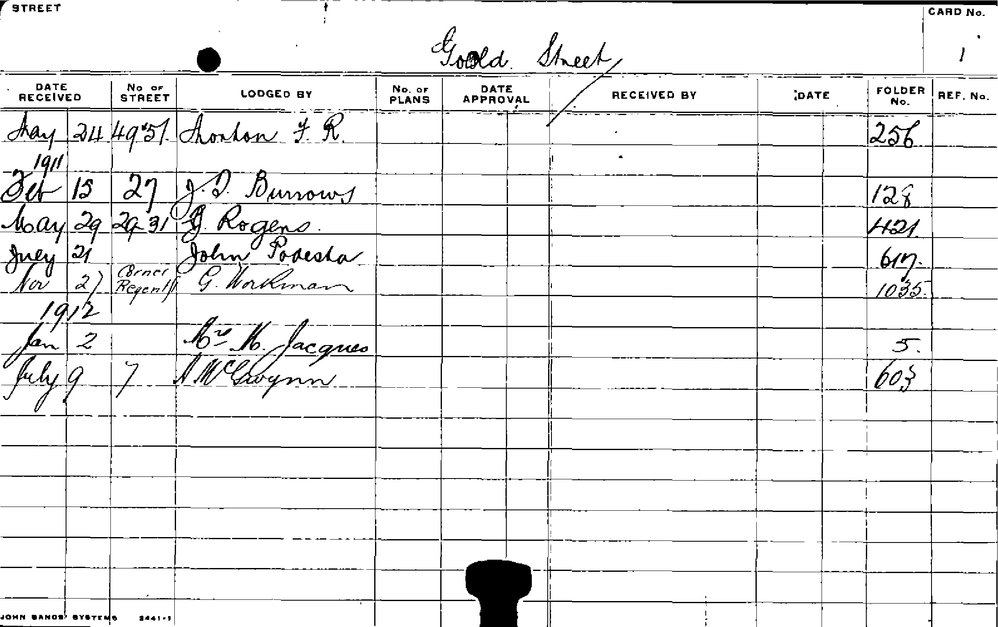 STREET
CARD No.
Goold Street
1
DATE RECEIVED No OF STREET LODGED BY No. OF PLANS DATE APPROVAL RECEIVED BY DATE FOLDER No. REF. No.
May 24 49-51 Thonton F R. 256
1911
Feb 15 27 Burrows 128
May 29 29-31 Rogers. 421
July 21 John Podesta 617.
Nov 27 Corner Regent G. Workman 1035.
1912
Jan 2 M. Jacques 5.
July 9 7 McGwynn 603
JOHN SANDS' SYSTEMS 2441-1